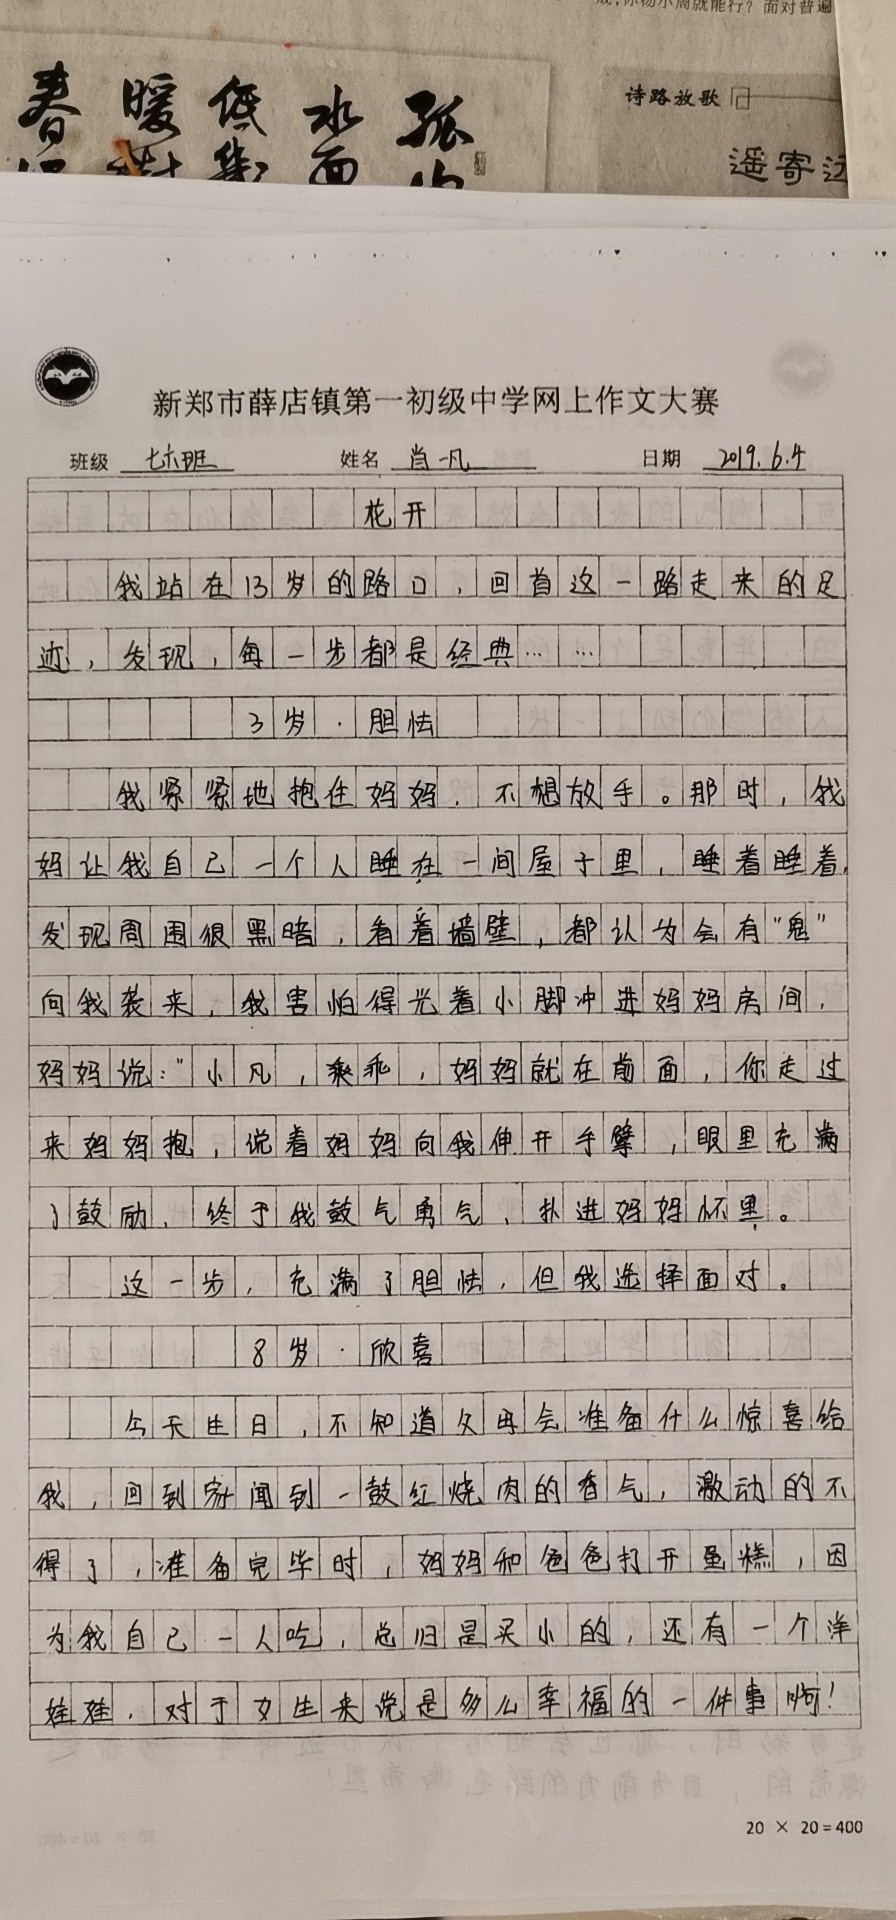 成，你杨小周就能行？面对普遍
诗路放歌
遥寄
孤
水面
低
暖
春
新郑市薛店镇第一初级中学网上作文大赛
班级 七六班 姓名 肖一凡 日期 2019.6.4
花开
我站在13岁的路口，回首这一路走来的足
迹，发现，每一步都是经典……
3岁·胆怯
我紧紧地抱住妈妈，不想放手。那时，我
妈让我自己一个人睡在一间屋子里，睡着睡着，
发现周围很黑暗，看着墙壁，都认为会有“鬼”
向我袭来，我害怕得光着小脚冲进妈妈房间，
妈妈说：“小凡，乘乖，妈妈就在前面，你走过
来妈妈抱，说着妈妈向我伸开手擘，眼里充满
了鼓励，终于我鼓气勇气，扑进妈妈怀里。
这一步，充满了胆怯，但我选择面对。
8岁·欣喜
今天生日，不知道父母会准备什么惊喜给
我，回到家闻到一鼓红烧肉的香气，激动的不
得了，准备完毕时，妈妈和爸爸打开蛋糕，因
为我自己一人吃，总归是买小的，还有一个洋
娃娃，对于女生来说是多么幸福的一件事啊！
20 × 20=400